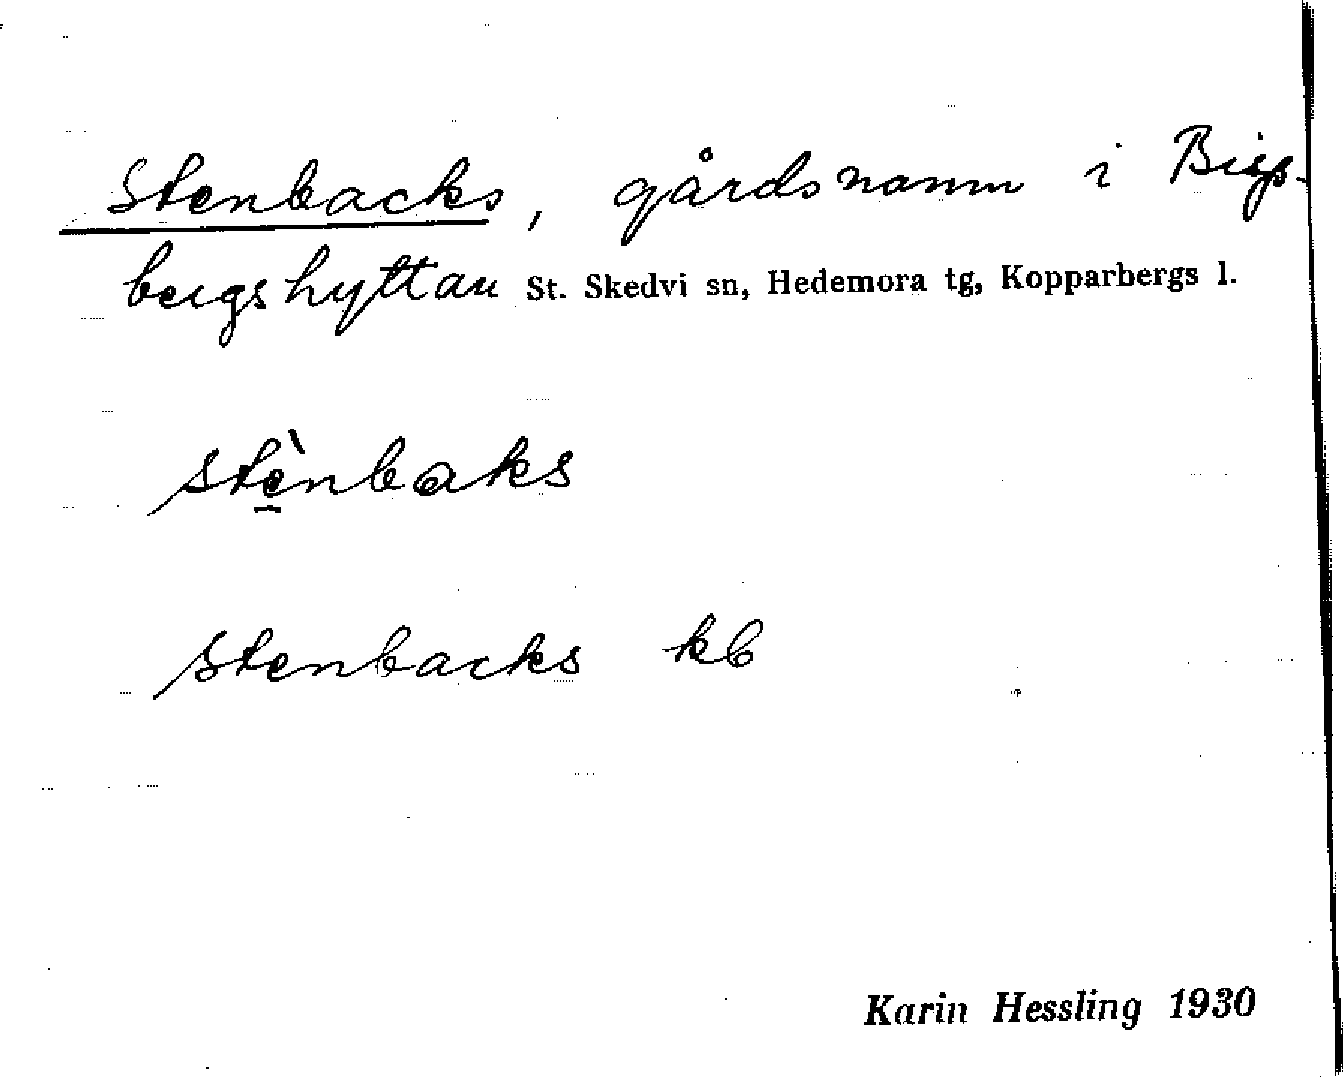 Stenbacks, gårdsnamn i Bisps-
bergshyttan St. Skedvi sn, Hedemora tg, Kopparbergs l.
stè̱nbaks
Stenbacks kb
Karin Hessling 1930